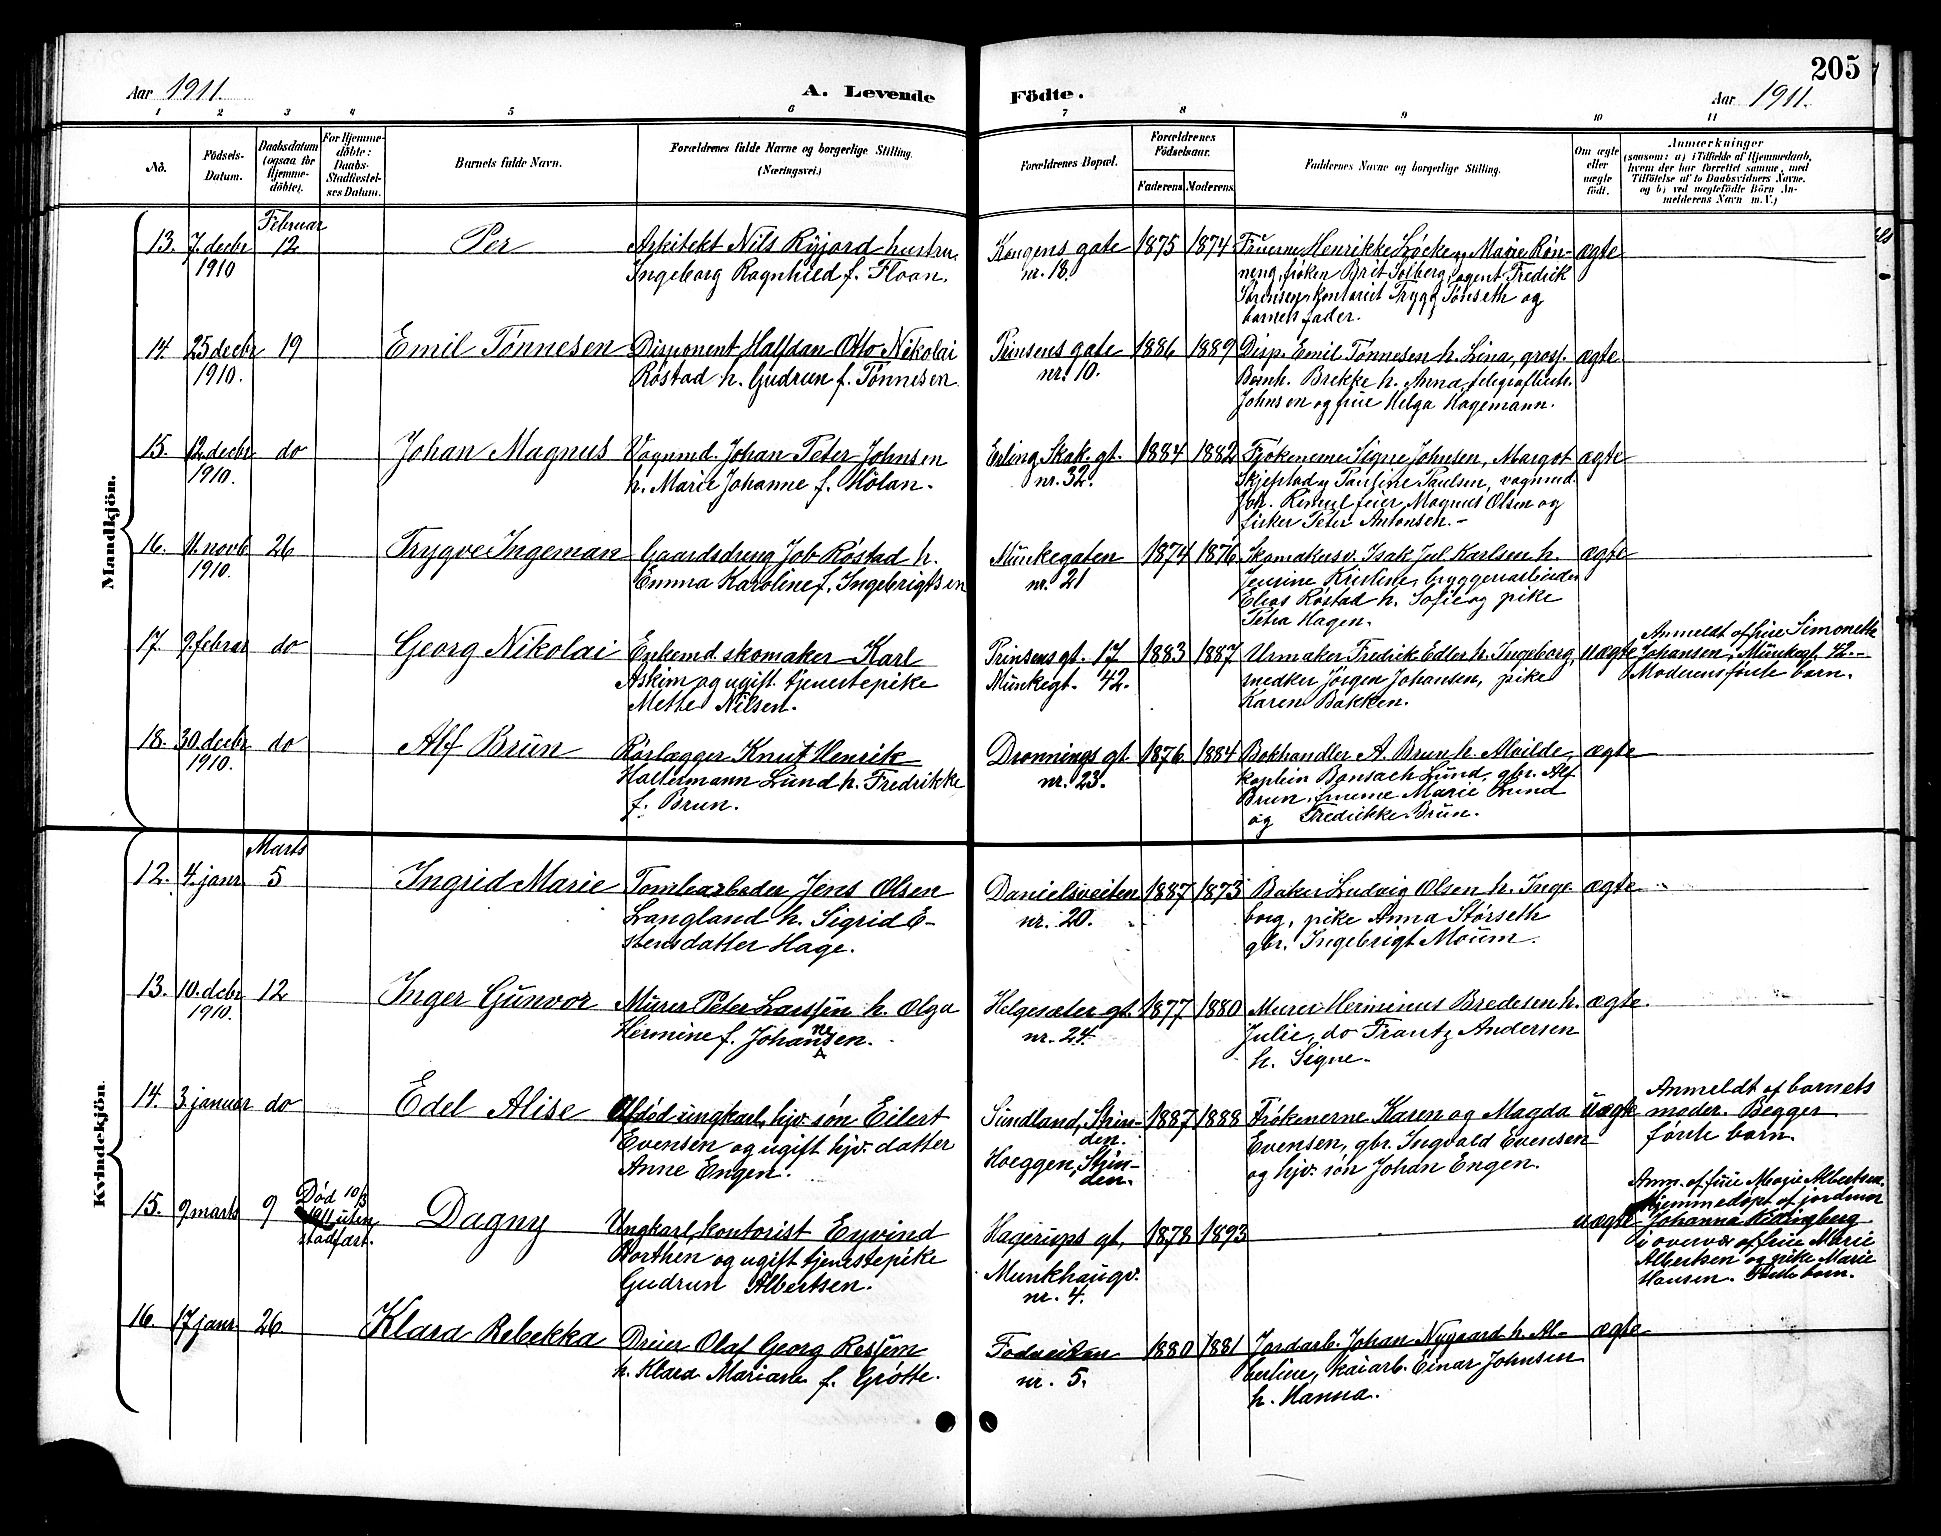 205
Aar 1911.
A. Levende Födte.
Aar 1911.
1 2 3 4 5 6 7 8 9 10 11
No.
Födsels-
Datum.
Daabsdatum
(ogsaa for
Hjemme-
döbte).
For Hjemme-
döbte:
Daabs-
Stadfæstel-
ses Datum.
Barnets fulde Navn.
Forældrenes fulde Navne og borgerlige Stilling.
(Næringsvei.)
Forældrenes Bopæl.
Forældrenes
Födselsaar.
Faderens. Moderens.
Faddernes Navne og borgerlige Stilling.
Om ægte
eller
uægte
født.
Anmærkninger
(saasom: a) i Tilfælde af Hjemmedaab,
hvem der har forrettet samme, med
Tilføielse af to Daabsvidners Navne.
og b) ved uægtefödte Börn An-
melderens Navn m. V.)
Mandkjön.
Februar
13. 7. decbr 12 Per Arkitekt Nils Ryjord hustru Kongens gate 1875 1874 Fruerne Henrikke Løcke og Marie Røn- ægte
1910 Ingeborg Ragnhild f. Floan. nr. 18. ning, frøken Brit Solberg, agent Fredrik
Sørensen, kontorist Trygg Tønseth og
barnets fader.
14. 25 decbr 19 Emil Tønnesen Disponent Halfdan Otto Nikolai Prinsens gate 1886 1889 Disp. Emil Tønnesen h. Lina, gross. ægte
1910. Røstad h. Gudrun f. Tønnesen. nr. 10. Bernh. Brekke h. Anna, telegrafbest.
Johnsen og frue Helga Hagemann.
15. 12. decbr do Johan Magnus Vognmd. Johan Peter Johnsen Erling Skak. gt. 1884 1882 Frøkenerne Signe Johnsen, Margot ægte
1910. h. Marie Johanne f. Hölan. nr. 32. Skjefstad og Pauline Paulsen, vognmd.
Joh. Rimul, feier Magnus Olsen og
fisker Peter Antonsen.-
16. 11. novb 26 Trygve Ingeman Gaardsdreng Job Røstad h. Munkegaten 1874 1876 Skomakersv. Isak Jul. Karlsen h. ægte
1910. Emma Karoline f. Ingebrigtsen nr. 21 Jensine Kristine, bryggeriarbeider
Elias Røstad h. Sofie og pike
Petra Hagen.
17. 9. febrar do Georg Nikolai Enkemd. skomaker Karl Prinsens gt. 17 1883 1887 Urmaker Fredrik Edler h. Ingeborg, uægte Anmeldt af frue Simonette
Askim og ugift tjenestepike Munkegt. 42. snedker Jørgen Johansen, pike Johansen, Munkegt. 42.-
Mette Nilsen. Karen Bakken. Moderens første barn.
18. 30. decbr do Alf Brun Rørlægger Knut Henrik Dronnings gt. 1876 1884 Bokhandler A. Brun h. Alvilde, ægte
1910. Holtermann Lund h. Fredrikke nr. 23. kaptein Bonsach Lund, gbr. Alf
f. Brun. Brun, fruerne Marie Lund
og Fredrikke Brun.
Kvindekjön.
Marts
12. 4. janr 5 Ingrid Marie Tomtearbeder Jens Olsen Danielsveiten 1887 1873 Baker Ludvig Olsen h. Inge- ægte
Langland h. Sigrid E- nr. 20. borg, pike Anna Störseth
stensdatter Hage. gbr. Ingebrigt Moum.
13. 10. decbr 12 Inger Gunvor Murer Peter Larssen h. Olga Helgesæter gt. 1877 1880 Murer Herminus Bredesen h. ægte
1910. Hermine f. Johannesen. nr. 24. Julie, do Frantz Andersen
h. Signe.
14. 3 januar do Edel Alise Afdød ungkarl, hjv. søn Eilert Sundland, Strin- 1887 1888 Frökenerne Karen og Magda uægte Anmeldt af barnets
Evensen og ugift hjv. datter den. Evensen, gbr. Ingvald Evensen moder. Begges
Anne Engen. Hoeggen, Strin- og hjv. søn Johan Engen. første barn.
den.
15. 9 marts 9 Död 10/3 Dagny Ungkarl, kontorist Eyvind Hagerups gt, 1878 1893 uægte Anm. af frue Marie Albertsen.
1911 uten Borthen og ugift tjenestepike Munkhaugv. Hjemmedøpt af jordmor
stadfæst. Gudrun Albertsen. nr. 4. Johanna
i overvær af frue Marie
Albertsen og pike Marie
Hansen. Første barn.
16. 17 janr 26 Klara Rebekka Dreier Olaf Georg Ressem Fodveiten 1880 1881 Jordarb. Johan Nygaard h. Al- ægte
h. Klara Mariane f. Grötte. nr. 5. bertine, kaiarb. Einar Johnsen
h. Hanna.